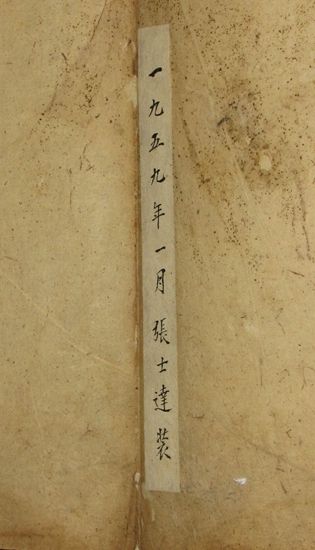 一九五九年一月張士達裝